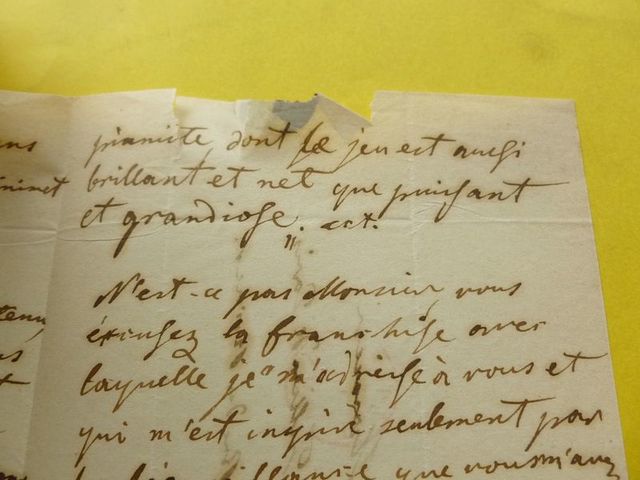 ns
pianiste, dont le jeu est aussi
brillant et net que puissant
et grandiose". ect.
N'est-ce pas Monsieur, vous
excusez la franchise avec
laquelle je m'adresse à vous et
qui m'est inspiré seulement par
que vous m'avez